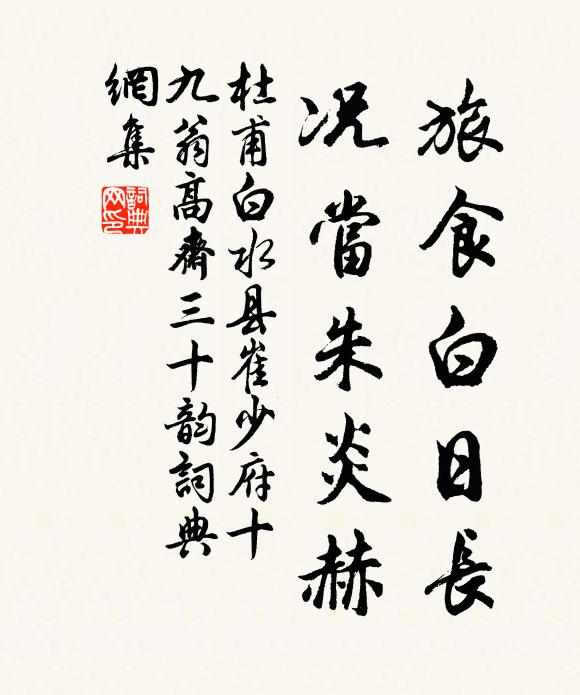 旅食白日長
况當朱炎赫
杜甫白水县崔少府十
九翁高齋三十韵詞典
網集
詞典网印